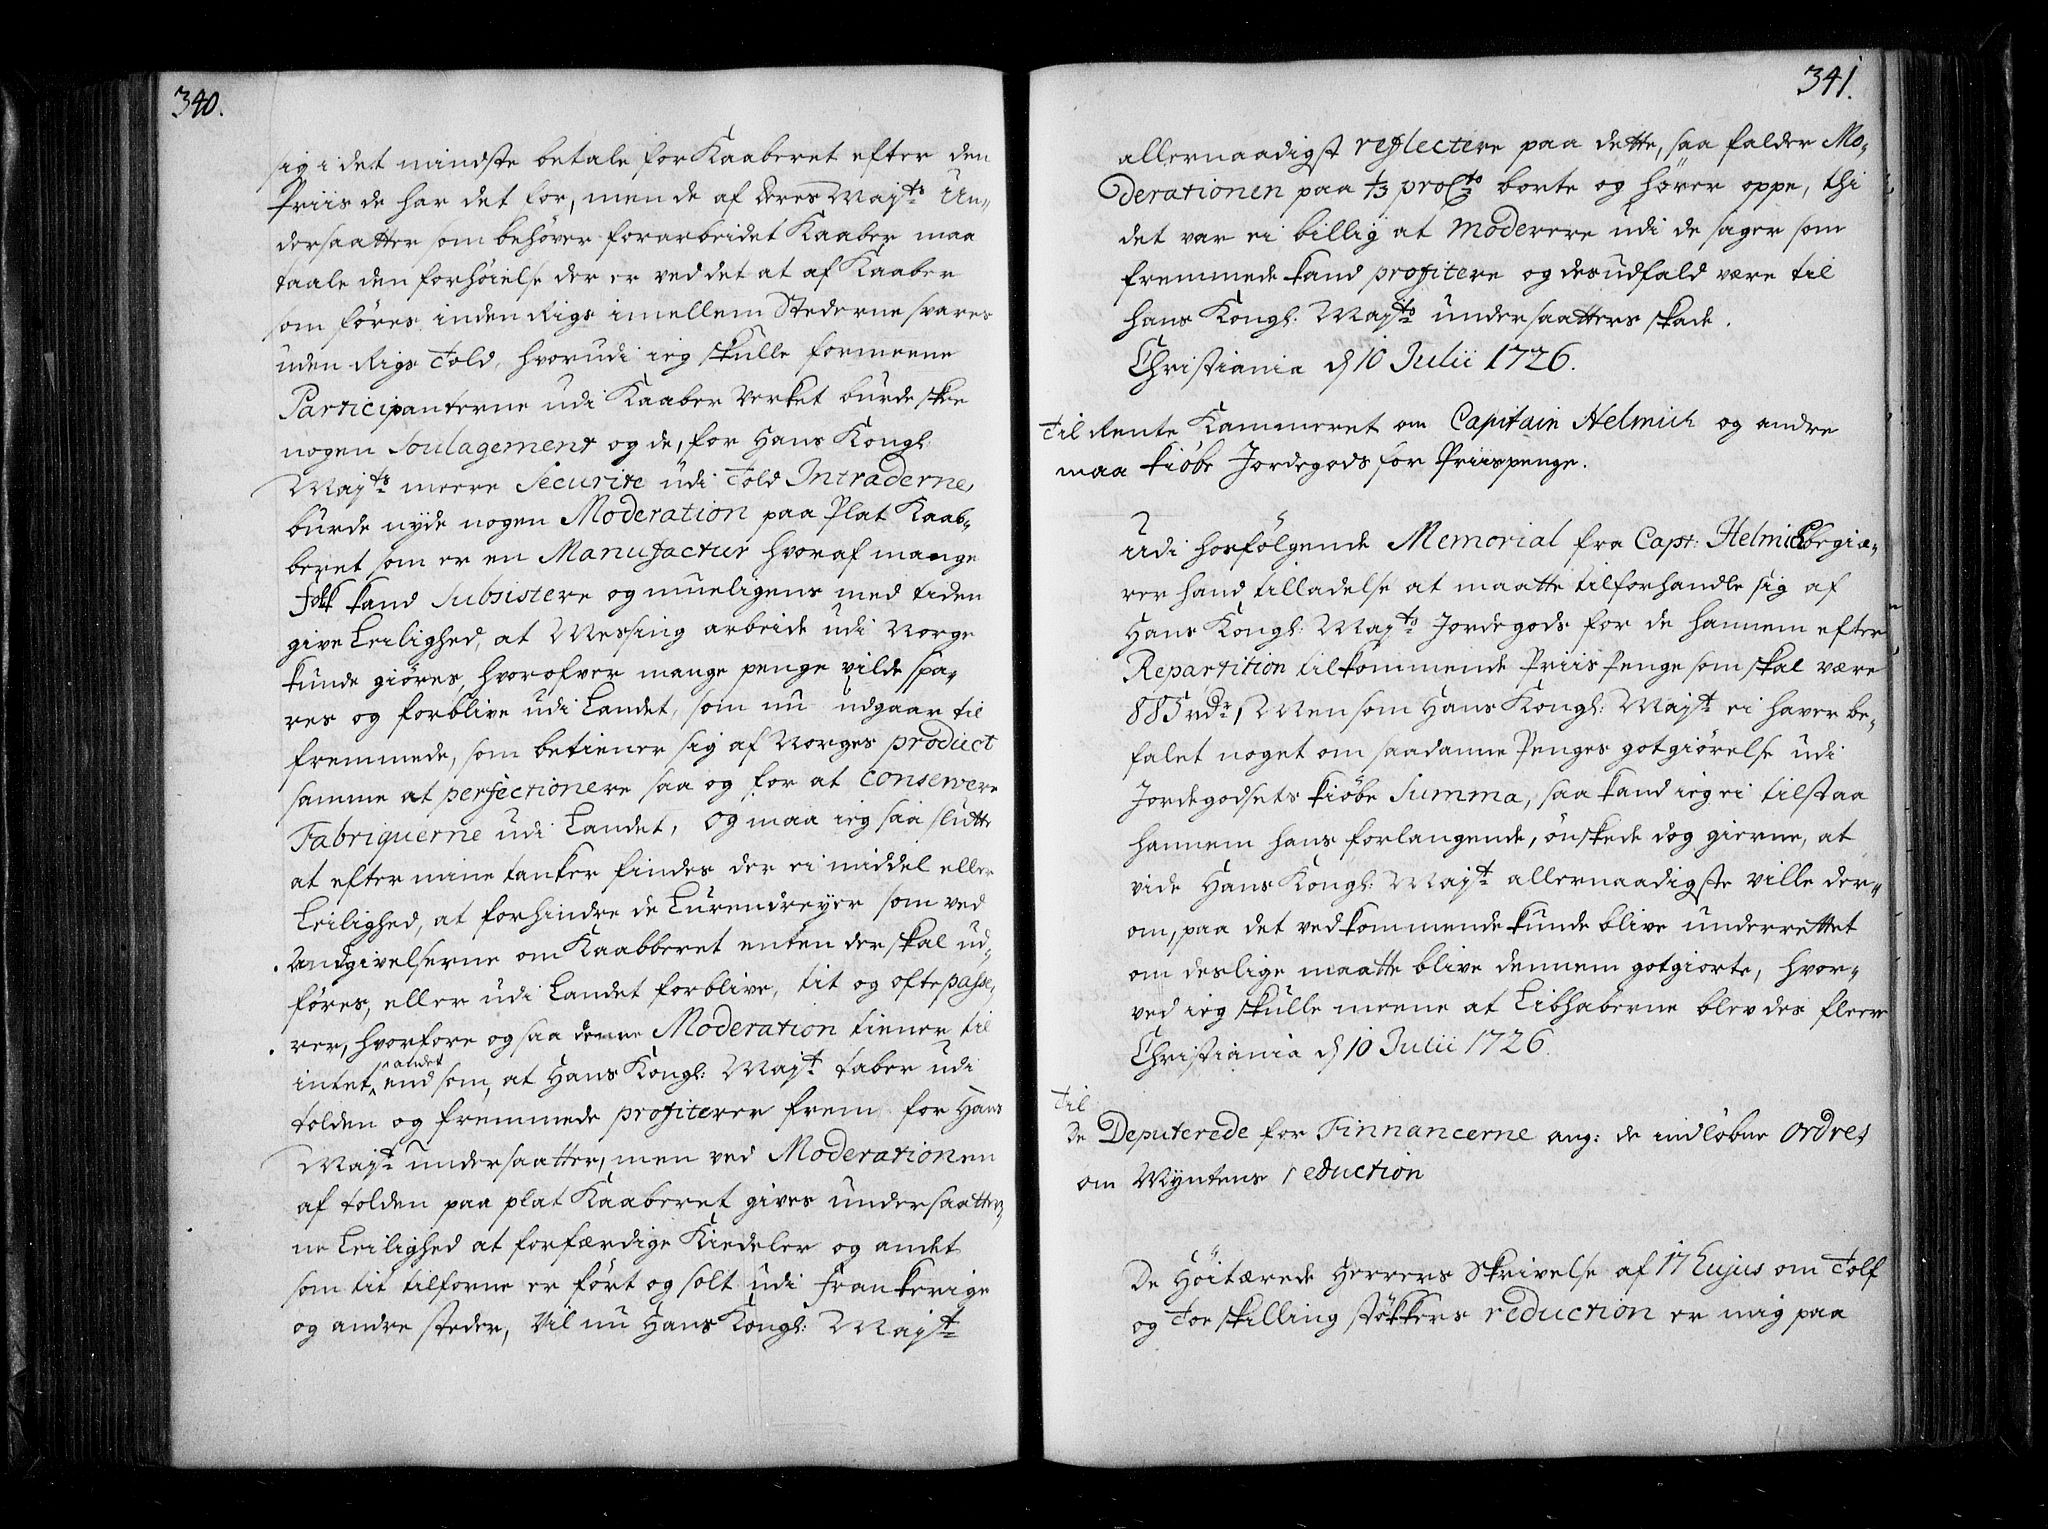 340.
sig i det mindste betale for Kaaberet efter den
Priis de har det for, men de af deres Maj:ts Un-
dersaatter som behøver forarbeidet Kaaber maa
taale den forhøielse der er ved det at af Kaaber
som føres inden Rigs imellem Stederne svares
uden Rigs Told, hvorudi ieg skulle formeene
Participanterne udi Kaaber Verket burde skee
nogen Soulagement og de, for Hans Kongl:
Maj:ts meere Securite udi Told Intraderne,
burde nyde nogen Moderation paa Plat Kaab-
beret som er en Manufactur hvoraf mange
Folk kand Subsistere og mueligens med tiden
give Leilighed, at Messing arbeide udi Norge
kunde giöres, hvorofver mange penge vilde spa-
res og forblive udi Landet, som nu udgaar til
fremmede, som betiener sig af Norges product
samme at perfectionere saa og for at conservere
Fabriquerne udi Landet, og maa ieg saa slutte
at efter mine tanker findes der ei middel eller
Leilighed, at forhindre de Lurendreyer som ved
Andgivelserne om Kaabberet enten der skal ud-
føres, eller udi Landet forblive, tit og ofte passe-
rer, hvorfore og saa denne Moderation tiener til
intet andet end som, at Hans Kongl: Maj:t taber udi
tolden og fremmede profiterer frem for Hans
Maj:ts undersaatter, men ved Moderationen
af tolden paa plat Kaaberet gives undersaatter-
ne Leilighed at forfærdige Kiedeler og andet
som tit tilforne er fört og solt udi Frankerige
og andre steder, Vil nu Hans Kongl: Maj:t
341.
allernaadigst reflectere paa dette, saa falder Mo-
derationen paa 1/3 proCto borte og hører oppe, thi
det var ei billig at moderere udi de sager som
fremmede kand profitere og des udfald være til
hans Kongl: Maj:ts undersaatters skade.
Christiania d 10 Julii 1726.
Til Rente Kammeret om Capitain Helmich og andre
maa kiöbe Jordegods for Priispenge.
Udi hosfölgende Memorial fra Capt: Helmich begiæ-
rer hand tilladelse at maatte tilforhandle sig af
Hans Kongl: Maj:ts Jordegods for de hannem efter
Repartition tilkommende Priis Penge som skal være
885 rdr, Men som Hans Kongl: Maj:t ei haver be-
falet noget om saadanne Penges gotgiörelse udi
Jordegodsets kiöbe Summa, saa kand ieg ei tilstaa
hannem hans forlangende, önskede dog gierne, at
vide Hans Kongl: Maj:ts allernaadigste ville der-
om, paa det vedkommende kunde blive underrettet
om deslige maatte blive dennem gotgiorte, hvor-
ved ieg skulle meene at Libhaberne blev des fleere
Christiania d 10 Julii 1726.
Til
De Deputerede for Finnancerne ang: de indløbne Ordres
om Myntens reduction
De Höitærede Herrers Skrivelse af 17 hujus om Tolf
og Toe skilling støkkers reduction er mig paa